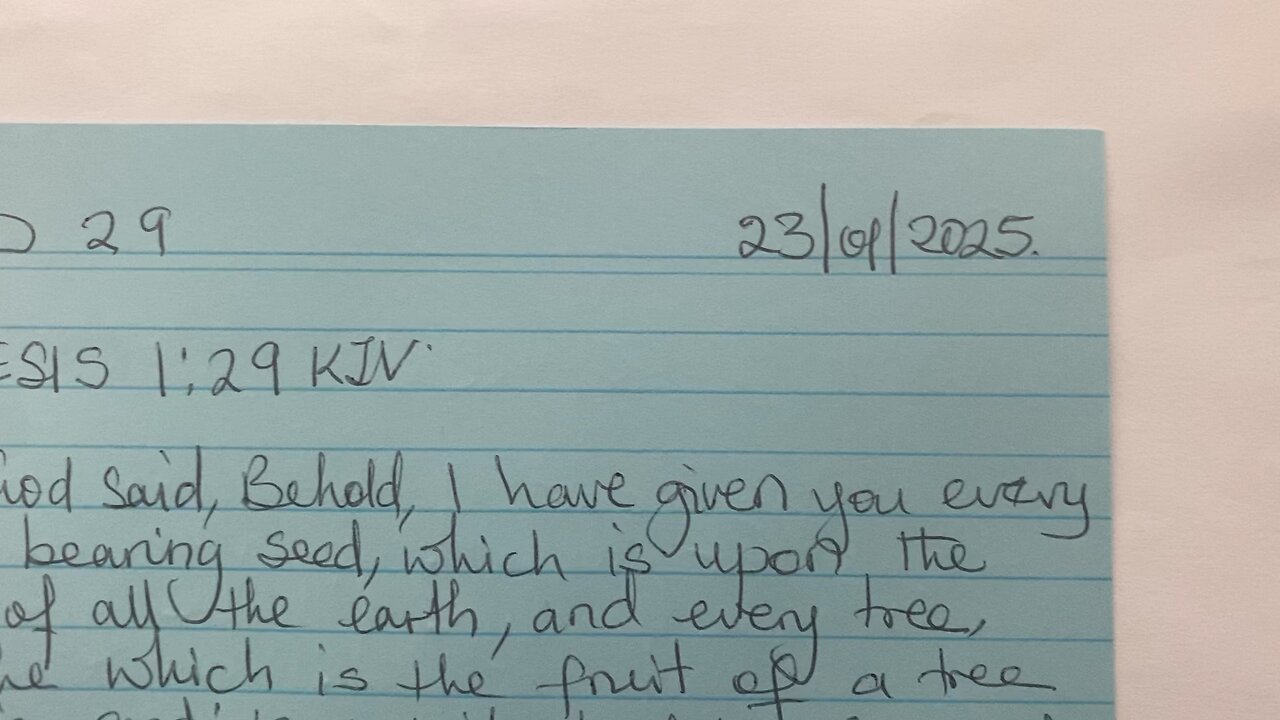 29 23/09/2025.
ESIS 1:29 KJV.
God said, Behold, I have given you every
bearing seed, which is upon the
of all the earth, and every tree,
which is the fruit of a tree